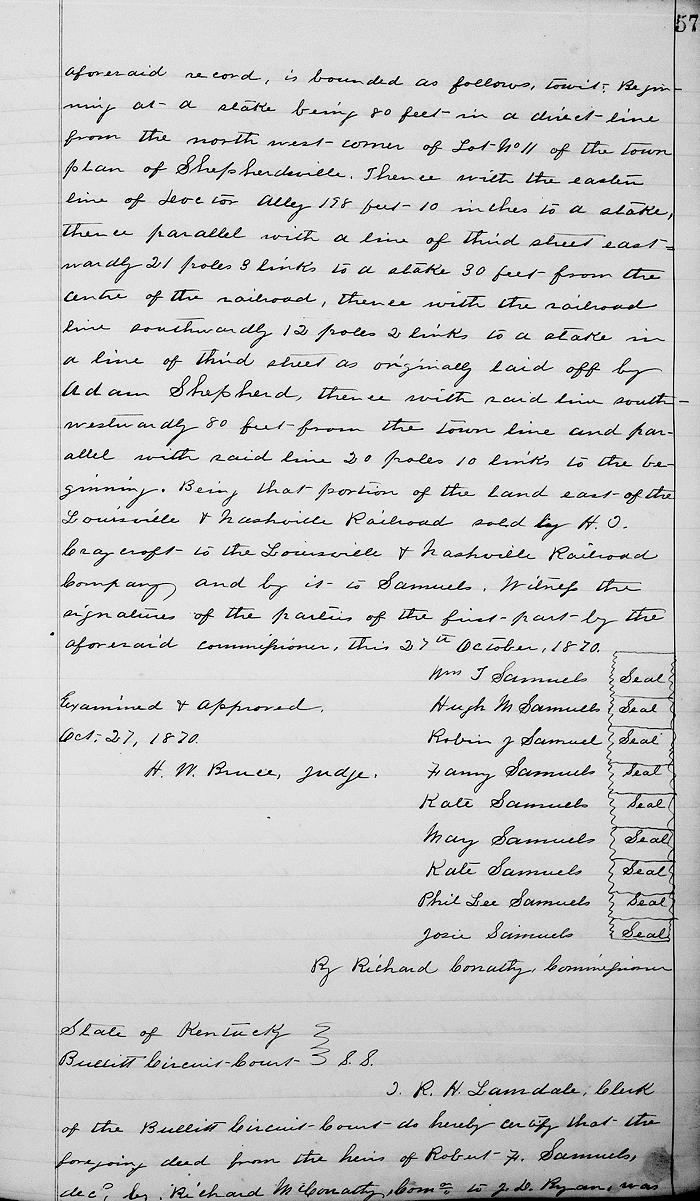 57
aforesaid record, is bounded as follows, towit: Begin-
ning at a stake being 80 feet in a direct line
from the north west corner of Lot No 11 of the town
plan of Shepherdsville. Thence with the eastern
line of Doctor Alley 198 feet 10 inches to a stake,
thence parallel with a line of third street east=
wardly 21 poles 3 links to a stake 30 feet from the
centre of the railroad, thence with the railroad
line southwardly 12 poles 2 links to a stake in
a line of third street as originally laid off by
Adam Shepherd, thence with said line south-
westwardly 80 feet from the town line and par-
allel with said line 20 poles 10 links to the be-
ginning. Being that portion of the land east of the
Louisville & Nashville Railroad sold by H. T.
Craycroft to the Louisville & Nashville Railroad
Company, and by it to Samuels. Witness the
signatures of the parties of the first part by the
aforesaid commissioner, this 27th October, 1870.
Wm T Samuels Seal
Examined & approved. Hugh M Samuels Seal
Oct. 27, 1870. Robin J Samuel Seal
H. W. Bruce, Judge. Fanny Samuels Seal
Kate Samuels Seal
May Samuels Seal
Kate Samuels Seal
Phil Lee Samuels Seal
Josie Samuels Seal
By Richard Conathy, Commissioner
State of Kentucky
Bullitt Circuit Court S.S.
I. R. H. Lansdale, Clerk
of the Bullitt Circuit Court do hereby certify that the
foregoing deed from the heirs of Robert F. Samuels,
decd, by Richard McConathy, Comr to J. D. Ryan, was